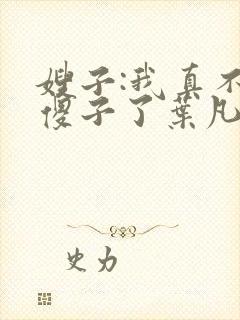 嫂子:我真不
傻子了葉凡
史力